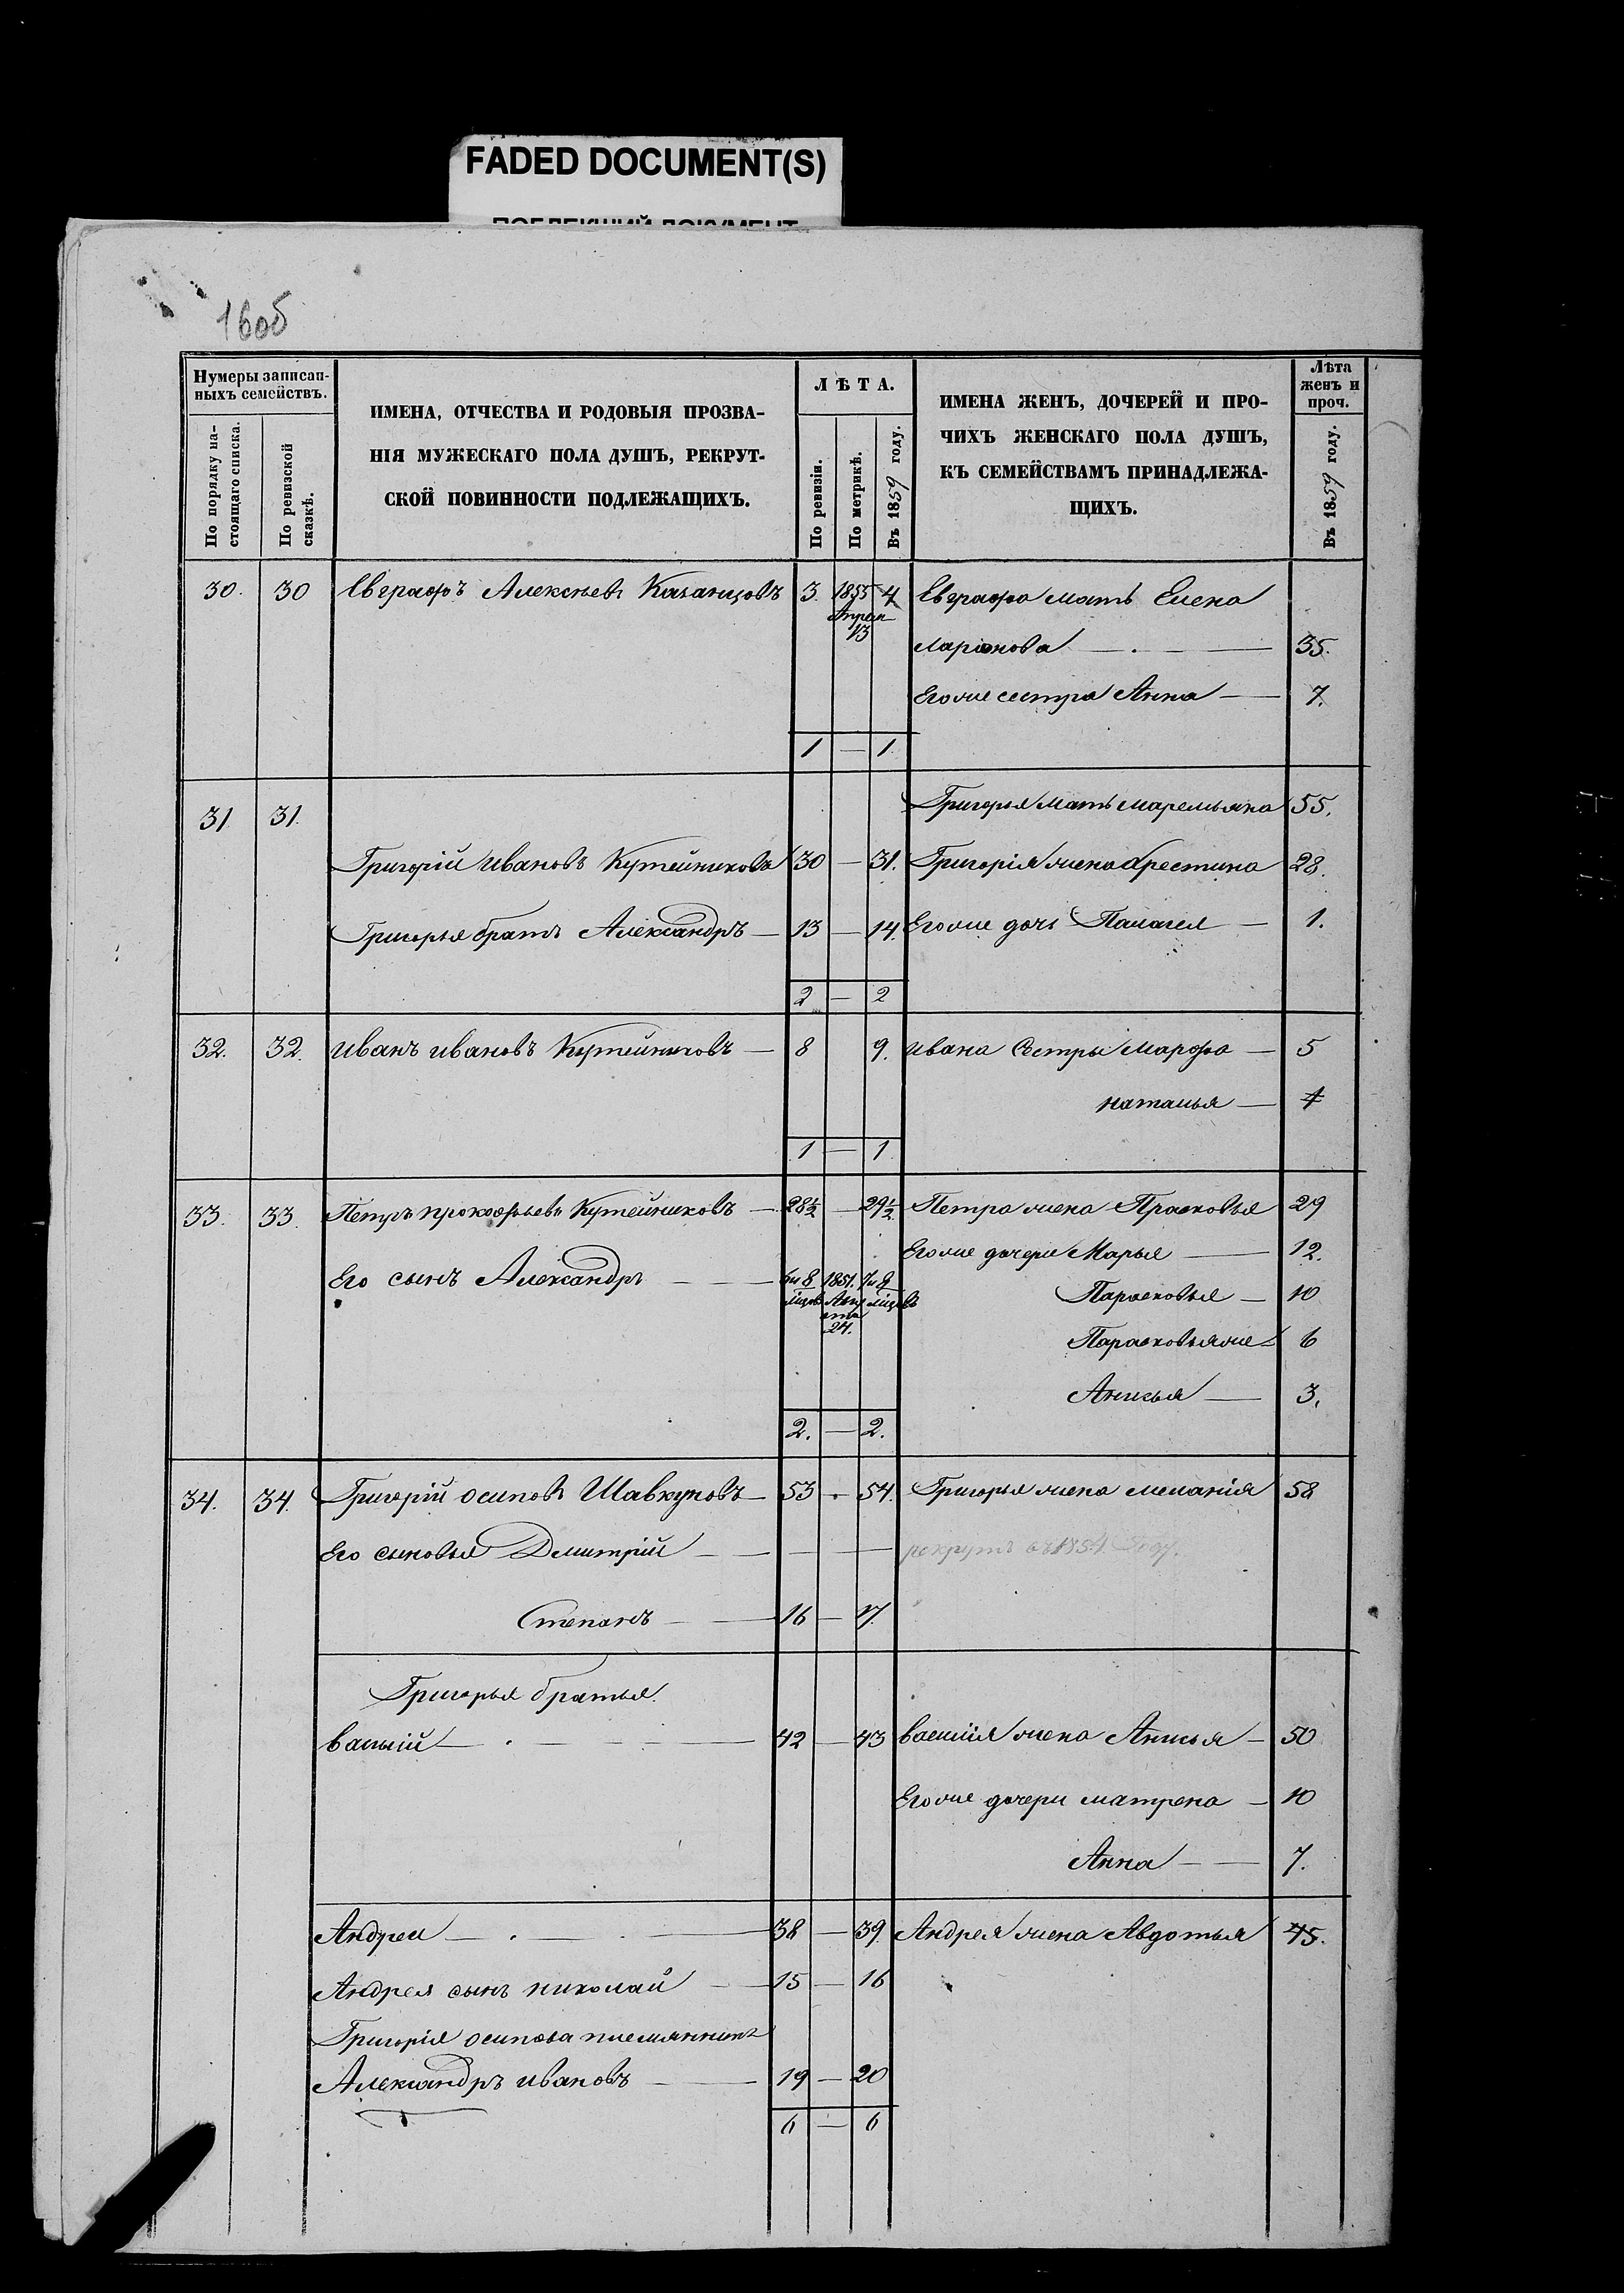 FADED DOCUMENT(S)
160б
Нумеры записан-
ныхъ семействъ.
По порядку на-
стоящаго списка.
По ревизской
сказкѣ.
ИМЕНА, ОТЧЕСТВА И РОДОВЫЯ ПРОЗВА-
НІЯ МУЖЕСКАГО ПОЛА ДУШЪ, РЕКРУТ-
СКОЙ ПОВИННОСТИ ПОДЛЕЖАЩИХЪ.
ЛѢТА.
По ревизіи.
По метрикѣ.
Въ 1859 году.
ИМЕНА ЖЕНЪ, ДОЧЕРЕЙ И ПРО-
ЧИХЪ ЖЕНСКАГО ПОЛА ДУШЪ,
КЪ СЕМЕЙСТВАМЪ ПРИНАДЛЕЖА-
ЩИХЪ.
Лѣта
женъ и
проч.
Въ 1859 году.
30. 30 Евграфъ Алексѣевъ Казанцовъ 3. 1855 4 Евграфа мать Елена
Апреля
13
Ларіонова — 35.
Его же сестра Анна — 7.
1 — 1
31. 31. Григорья мать Маремьяна 55.
Григорій Ивановъ Кутейниковъ 30 — 31. Григорія жена Хрестина 28.
Григорья братъ Александръ — 13 — 14. Его же дочь Палагея — 1.
2 — 2
32. 32. Иванъ Ивановъ Кутейниковъ — 8 9. Ивана Сестры Марфа — 5
Наталья — 4
1 — 1
33. 33. Петръ Прокофьевъ Кутейниковъ — 28½ — 29½ Петра жена Прасковья 29
Его же дочери Марья — 12.
Его сынъ Александръ — 6 и 8 1851. 7 и 8
мцовъ Авгу мцовъ
ста
24.
Парасковья — 10
Парасковья же — 6
Анисья — 3.
2. — 2.
34. 34. Григорій Осиповъ Шавкуновъ — 53 . 54. Григорья жена Меланія 58
Его сыновья Дмитрій — рекрутъ въ 1854 году.
Степанъ — 16 — 17.
Григорья братья
Василій — 42 — 43 Василія жена Анисья — 50
Его же дочери Матрена — 10
Анна — 7.
Андреи — 38 — 39. Андрея жена Авдотья 45.
Андрея сынъ Николай — 15 — 16
Григорія Осипова племянникъ
Александръ Ивановъ — 19 — 20
6 — 6